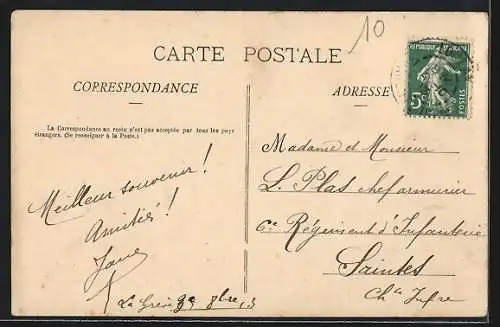 10
CARTE POSTALE
CORRESPONDANCE
ADRESSE
REPUBLIQUE FRANÇAISE
5c
POSTES
La Correspondance au recto n'est pas acceptée par tous les pays
étrangers. (Se renseigner à la Poste.)
Meilleur souvenir!
Amitiés!
La 8bre 13
Madame et Monsieur
L. Plas chef armurier
6e Régiment d'Infanterie
Saintes
Chte Infre